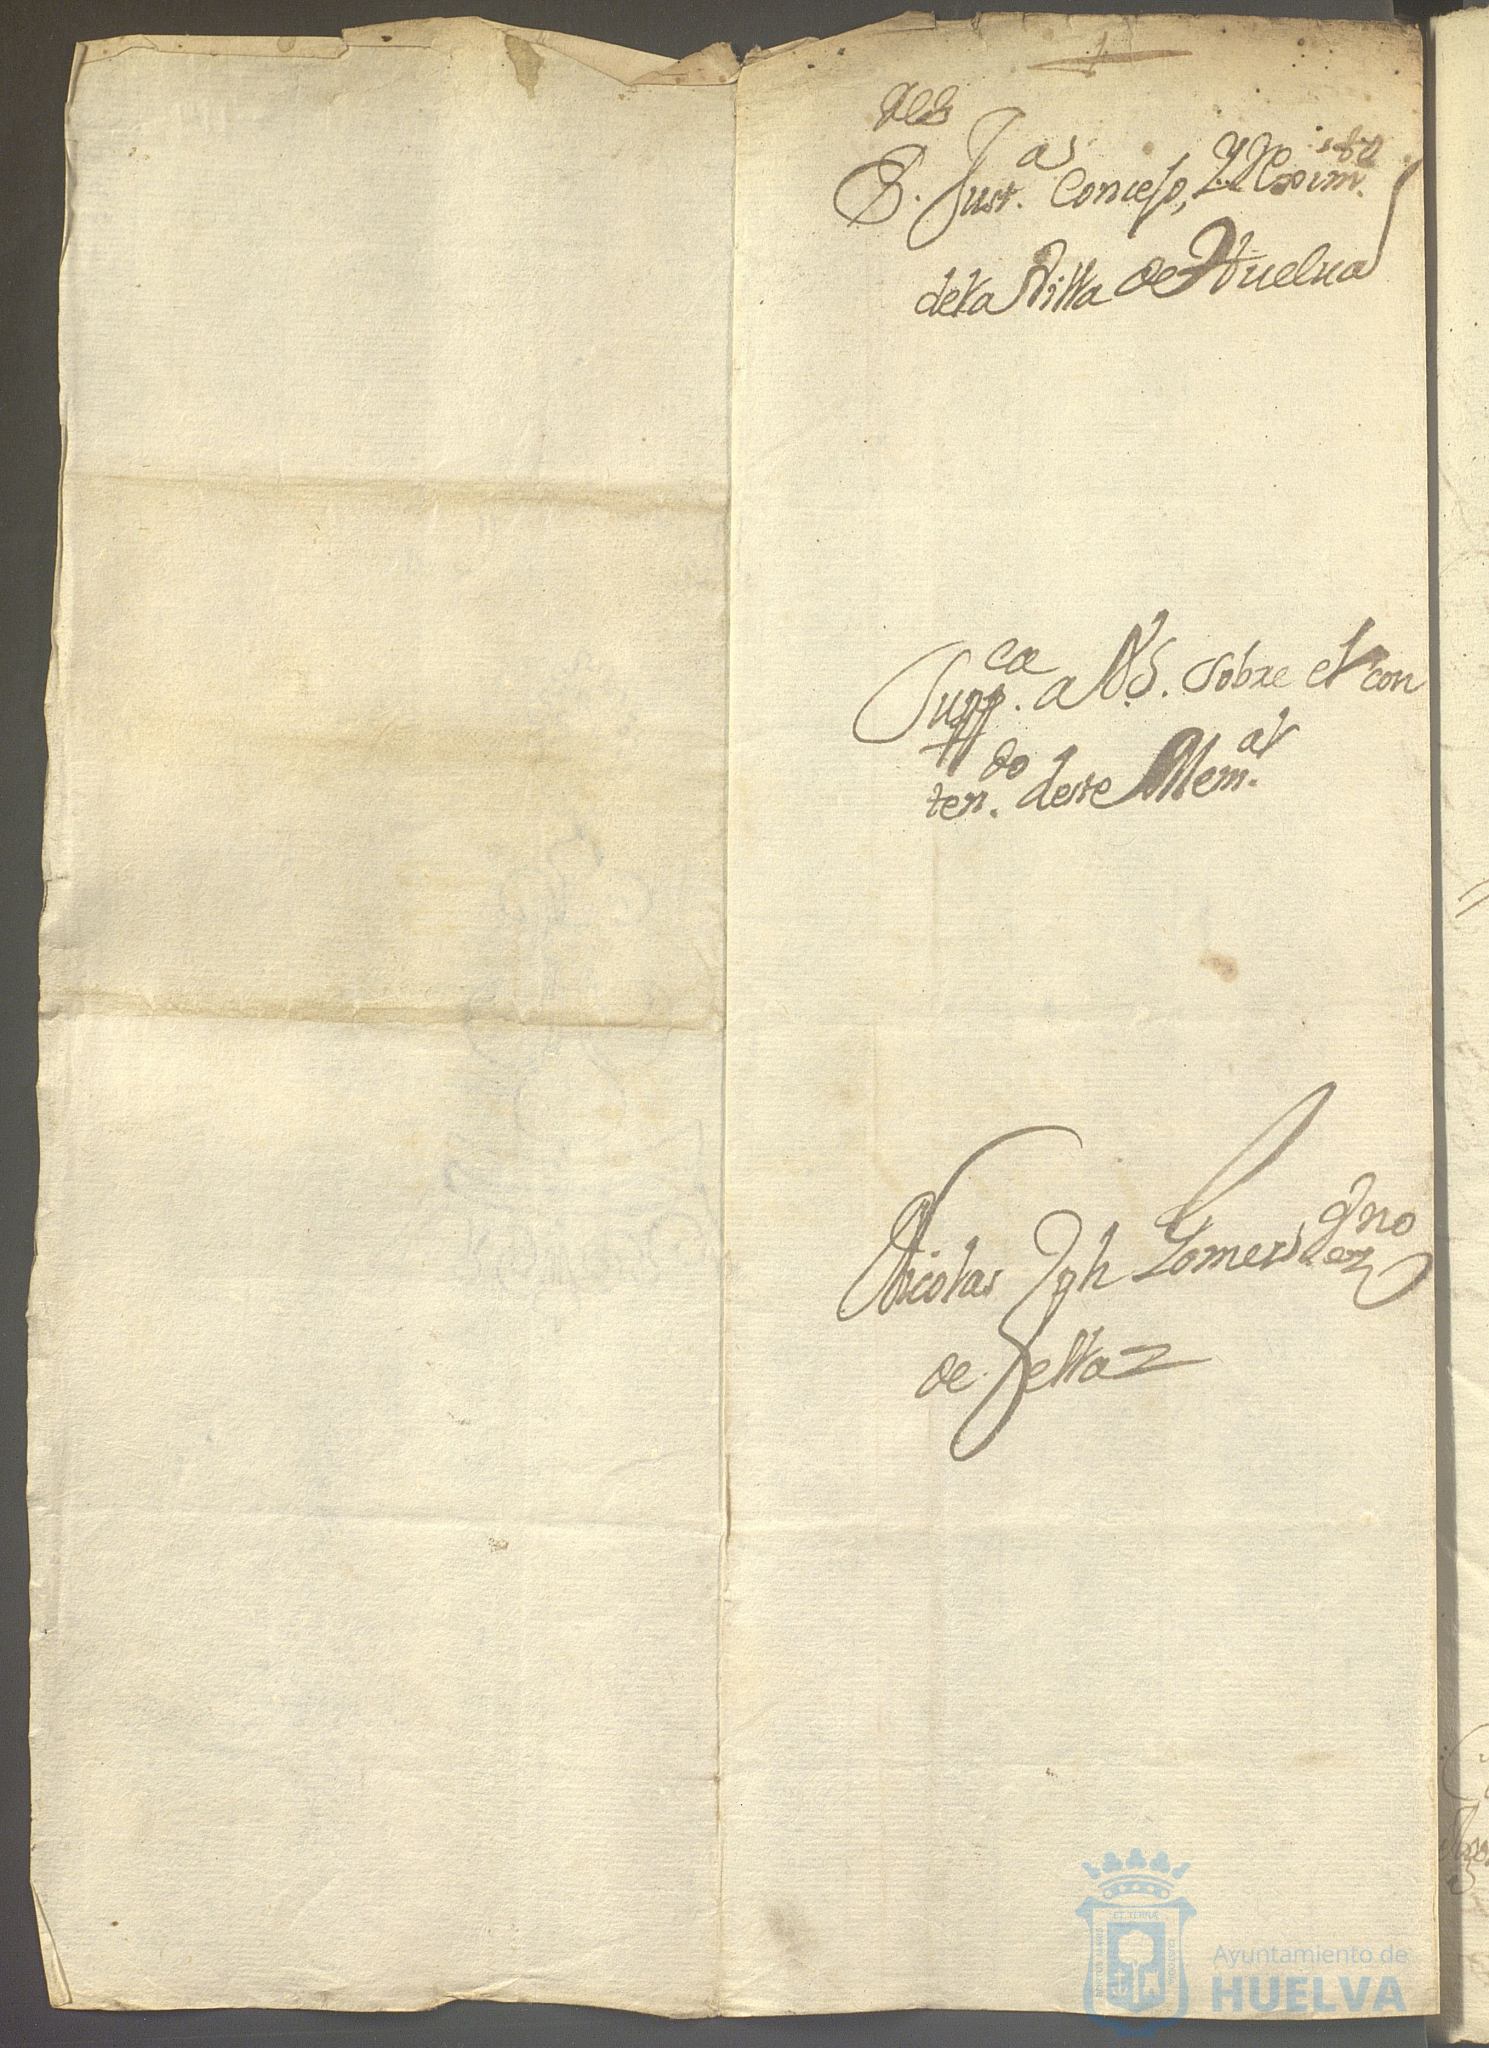 S. Just.as Concejo, y Reximto
dela Villa de Huelva
Suppca. a V.S. sobre el con
tendo. deste Memal.
Nicolas Jph
de Zeltaz
Ayuntamiento de
HUELVA